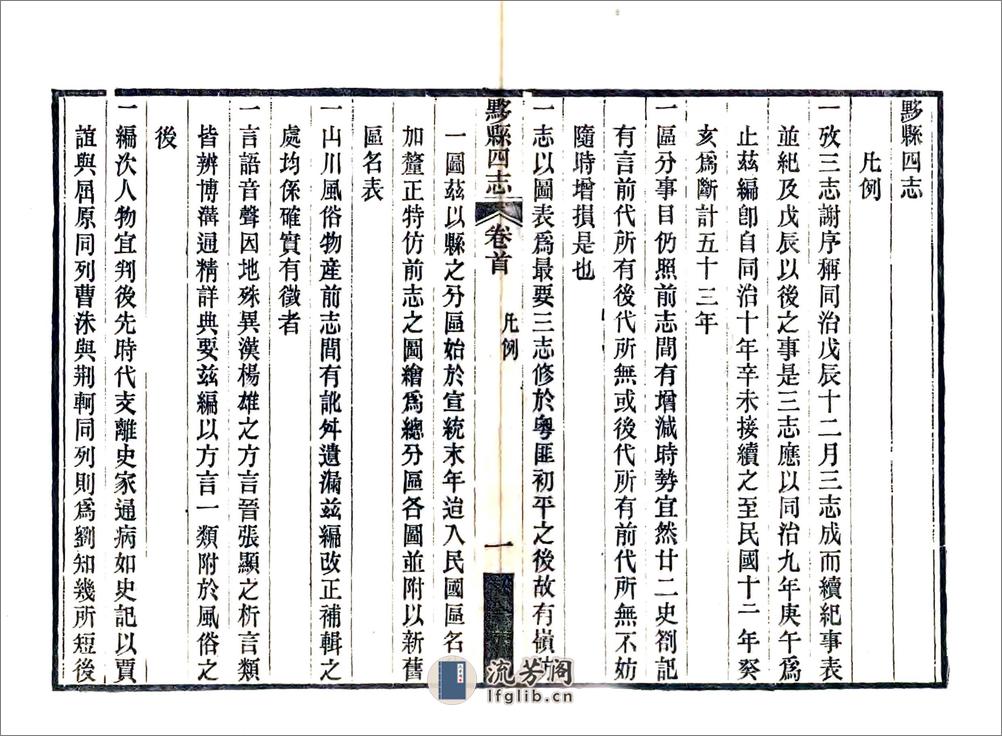 黟縣四志
凡例
一攷三志謝序稱同治戊辰十二月三志成而續紀事表
並紀及戊辰以後之事是三志應以同治九年庚午爲
止茲編卽自同治十年辛未接續之至民國十二年癸
亥爲斷計五十三年
一區分事目仍照前志間有增減時勢宜然廿二史劄記
有言前代所有後代所無或後代所有前代所無不妨
隨時增損是也
一志以圖表爲最要三志修於粵匪初平之後故有嶺
黟縣四志 卷首 凡例 一
一圖茲以縣之分區始於宣統末年迨入民國區名
加釐正特仿前志之圖繪爲總分區各圖並附以新舊
區名表
一山川風俗物産前志間有訛舛遺漏茲編改正補輯之
處均係確實有徵者
一言語音聲因地殊異漢楊雄之方言晉張顯之析言類
皆辨博瀟通精詳典要茲編以方言一類附於風俗之
後
一編次人物宜判後先時代支離史家通病如史記以賈
誼與屈原同列曹沬與荆軻同列則爲劉知幾所短後
流芳阁
lfglib.cn